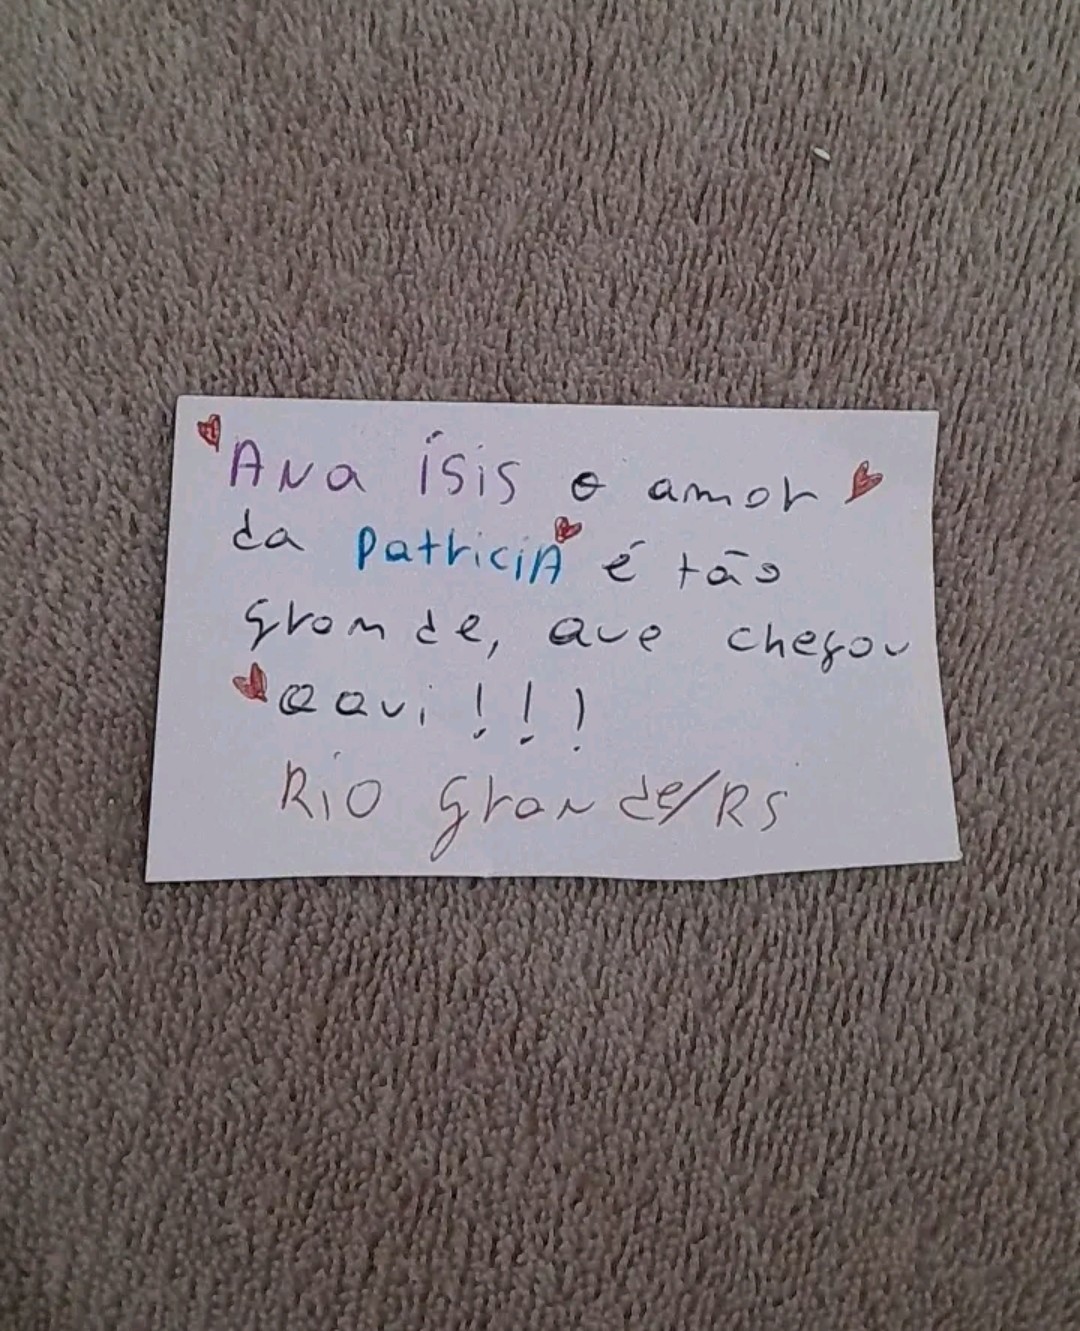 Ana Ísis o amor
da Patricia é tão
grande, que chegou
aqui !!!
Rio Grande/RS